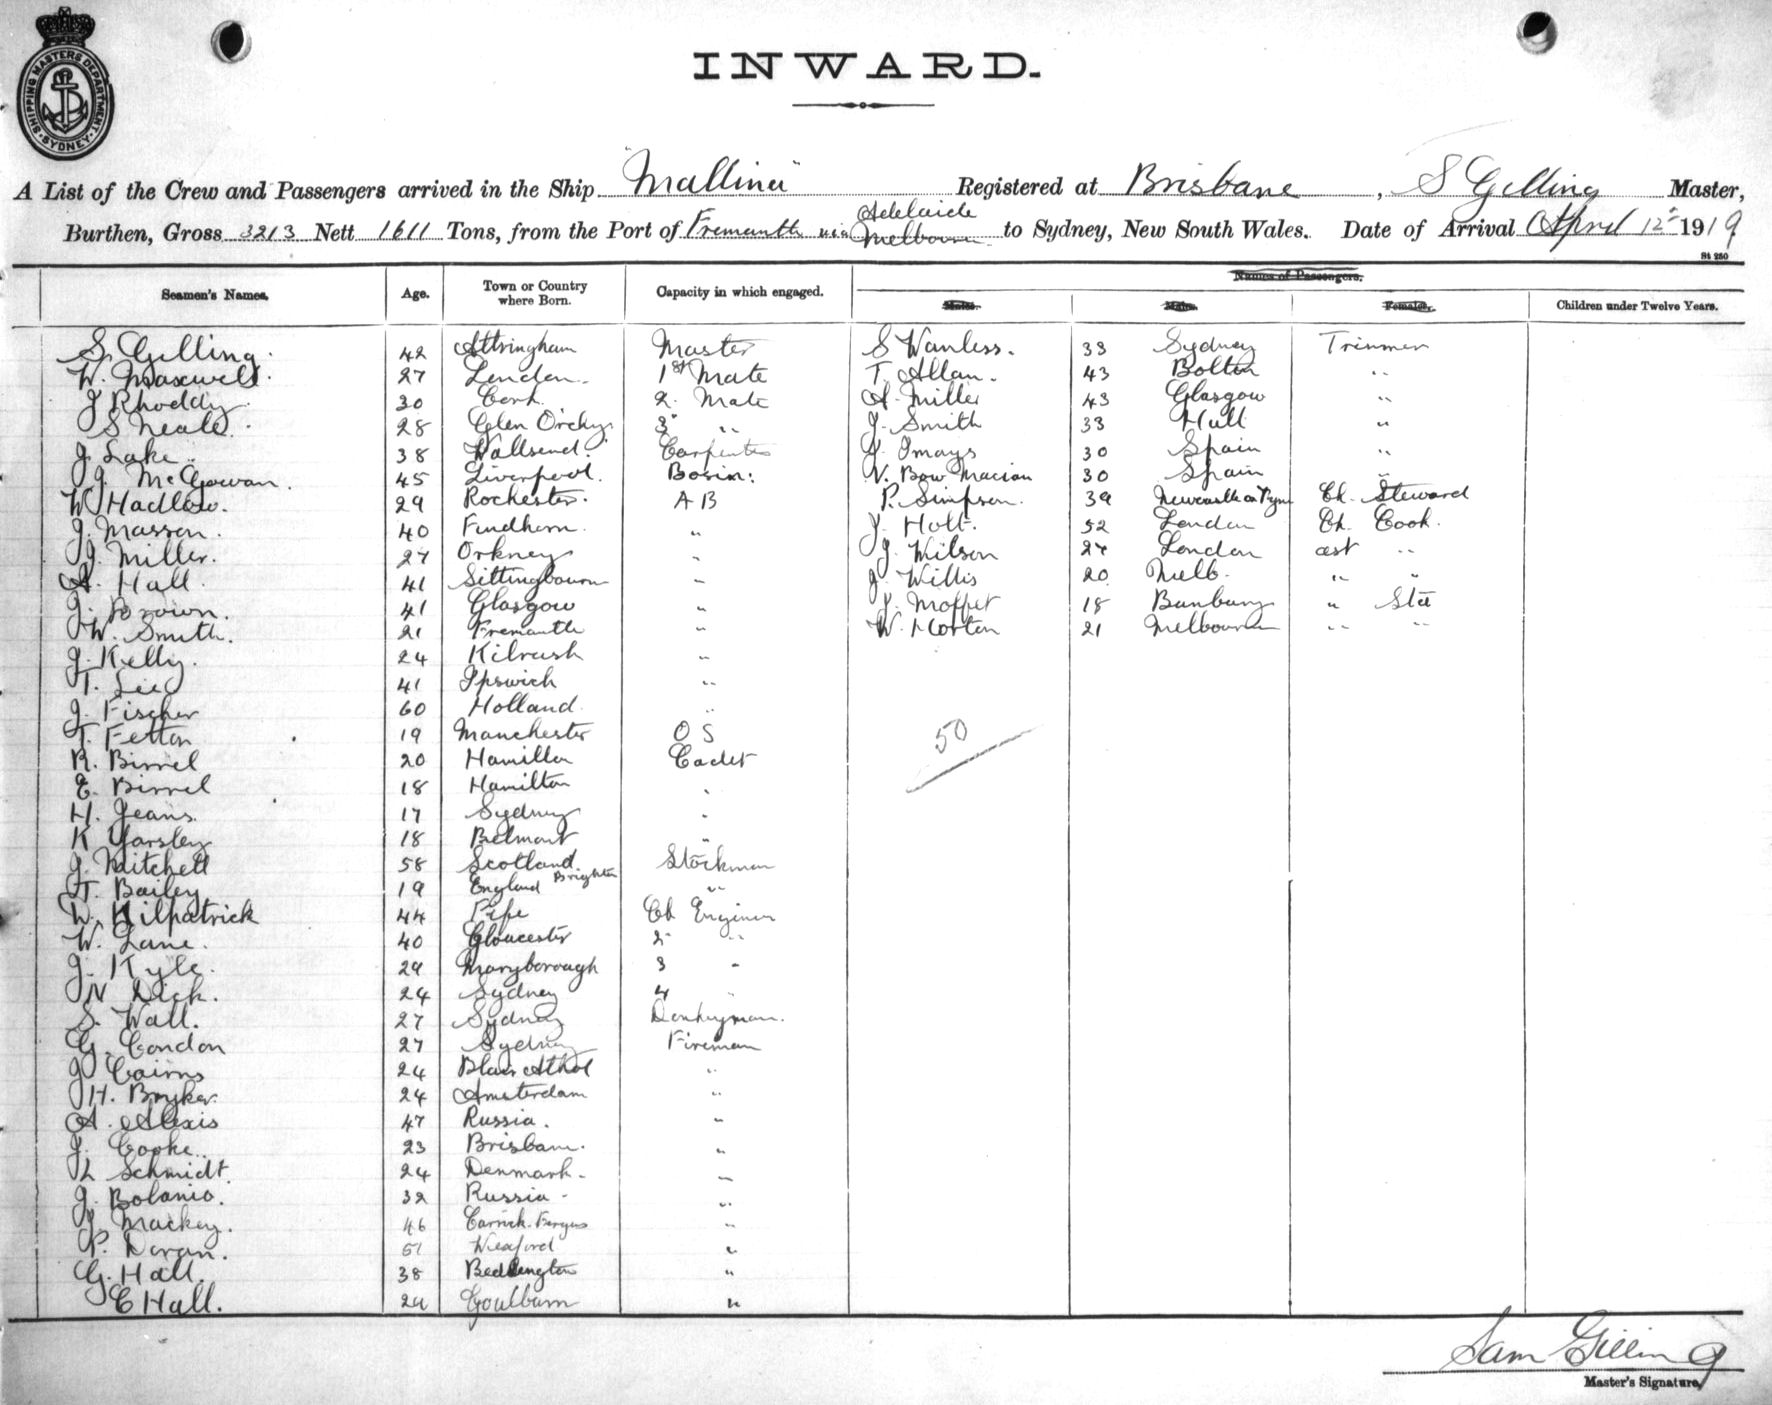 SHIPPING MASTERS DEPARTMENT. SYDNEY
INWARD.
A List of the Crew and Passengers arrived in the Ship "Mallina" Registered at Brisbane, S Gilling Master,
Burthen, Gross 3213 Nett 1611 Tons, from the Port of Fremantle via Adelaide Melbourne to Sydney, New South Wales. Date of Arrival April 12 1919
St 250
Names of Passengers.
Seamen's Names. Age. Town or Country where Born. Capacity in which engaged. Males. Females. Children under Twelve Years.
S. Gilling. 42 Altringham Master S Wanless. 33 Sydney Trimmer
W. Maxwell. 27 London. 1st Mate T. Allan. 43 Bolton "
J Rhoddy. 30 Cork. 2. Mate A. Miller 43 Glasgow "
S Neale. 28 Glen Orchy 3 " J. Smith 33 Hull "
J Lake. 38 Wallsend. Carpenter 30 Spain "
J. McGowan. 45 Liverpool. Bosin: 30 Spain "
W Hadlow. 29 Rochester. A B P. Simpson. 39 Newcastle on Tyne Ch. Steward
J. Masson. 40 Findhorn. " J. Holt. 52 London Ch. Cook.
J. Miller. 27 Orkney " J. Wilson 27 London asst "
A. Hall. 41 Sittingbourn " J Willis 20 Melb. " "
J. Brown. 41 Glasgow " J. Moffet 18 Bunbury " Std
W. Smith. 21 Fremantle " W. Horton 21 Melbourne " "
J. Kelly. 24 Kilrush "
T. Lee 41 Ipswich "
J. Fischer 60 Holland. "
T. Fetton 19 Manchester O S
50
R. Birrel 20 Hamilton Cadet
E. Birrel 18 Hamilton "
H. Jeans. 17 Sydney "
K Yarsley 18 Belmont "
J. Mitchell 58 Scotland. Stockman
H. Bailey 19 England Brighton "
W. Kilpatrick 44 Fife Ch Enginer
W. Lane. 40 Gloucester 2 "
J. Kyle. 29 Maryborough 3 "
N Dick. 24 Sydney 4 "
S. Wall. 27 Sydney Donkeyman.
G. Condon 27 Sydney Fireman
J Cairns 24 Blair Athol "
H. Bryker. 24 Amsterdam "
A. Alexis 47 Russia. "
J. Cooke. 23 Brisbane. "
L Schmidt. 24 Denmark. "
J. Bolanio. 32 Russia - "
J. Mackey. 46 Carrick-Fergus "
P. Doran. 51 Wexford "
G. Hall. 38 Bedlington "
C Hall. 24 Goulburn "
Sam Gilling
Master's Signature,